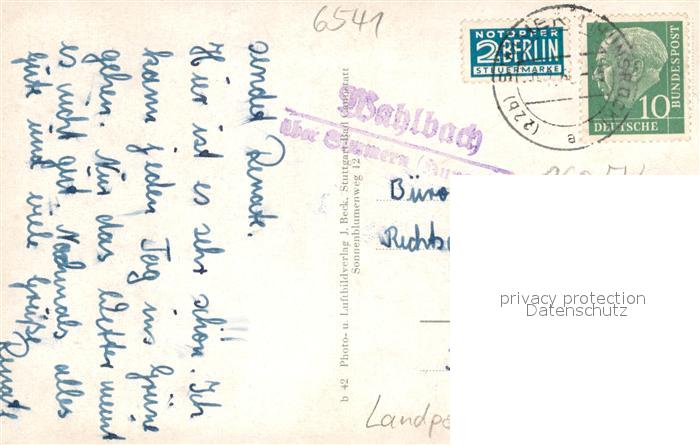 6541
NOTOPFER
2 BERLIN
STEUERMARKE
10
DEUTSCHE
BUNDESPOST
(22b)
a
Wahlbach
über Simmern
sendet Renate.
Hier ist es sehr schön. Ich
kann jeden Tag ins Grüne
gehn. Nur das Wetter meint
es nicht gut. Nochmals alles
gute und viele Grüße
Renate
b 42 Photo- u. Luftbildverlag J. Beck, Stuttgart-Bad Cannstatt
Sonnenblumenweg 12
Büro
Rechts
privacy protection
Datenschutz
Landpo